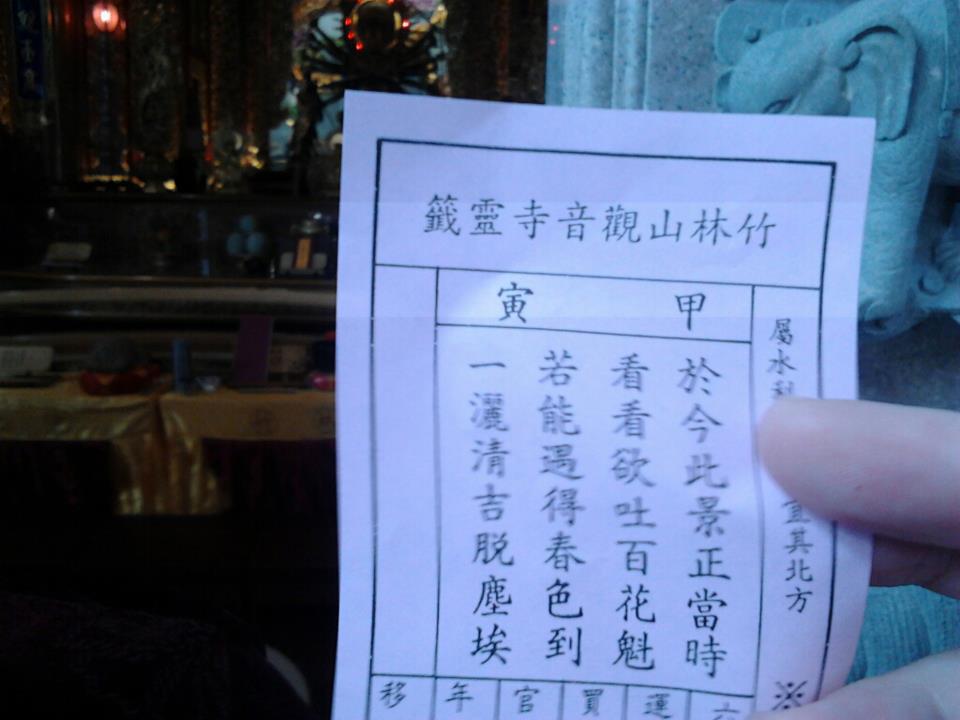 竹林山觀音寺靈籤
屬水 宜其北方 ※
甲寅
於今此景正當時
看看欲吐百花魁
若能遇得春色到
一灑清吉脫塵埃
運 買 官 年 移